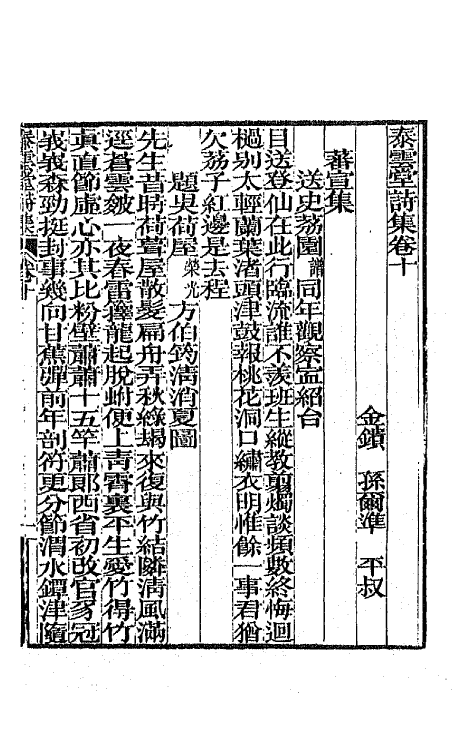 泰雲堂詩集卷十
金鎖　孫爾準　平叔
蕃宣集
送史荔園譜同年觀察寍紹台
目送登仙在此行臨流誰不羨班生縱教翦燭談頻數終悔迴
檛別太輕蘭葉渚頭津鼓報桃花洞口繡衣明惟餘一事君猶
欠荔子紅邊是去程
題吳荷屋榮光方伯筠清消夏圖
先生昔時荷葺屋散髮扁舟弄秋綠朅來復與竹結隣清風滿
逕蒼雲皴一夜春雷籜龍起脫蚹便上靑霄裏平生愛竹得竹
眞直節虛心亦其比粉壁蕭蕭十五竿蕭郞西省初改官豸冠
峩峩森勁挺封事幾向甘蕉彈前年剖符更分節渭水鐔津隨
泰雲堂詩集　卷十　一